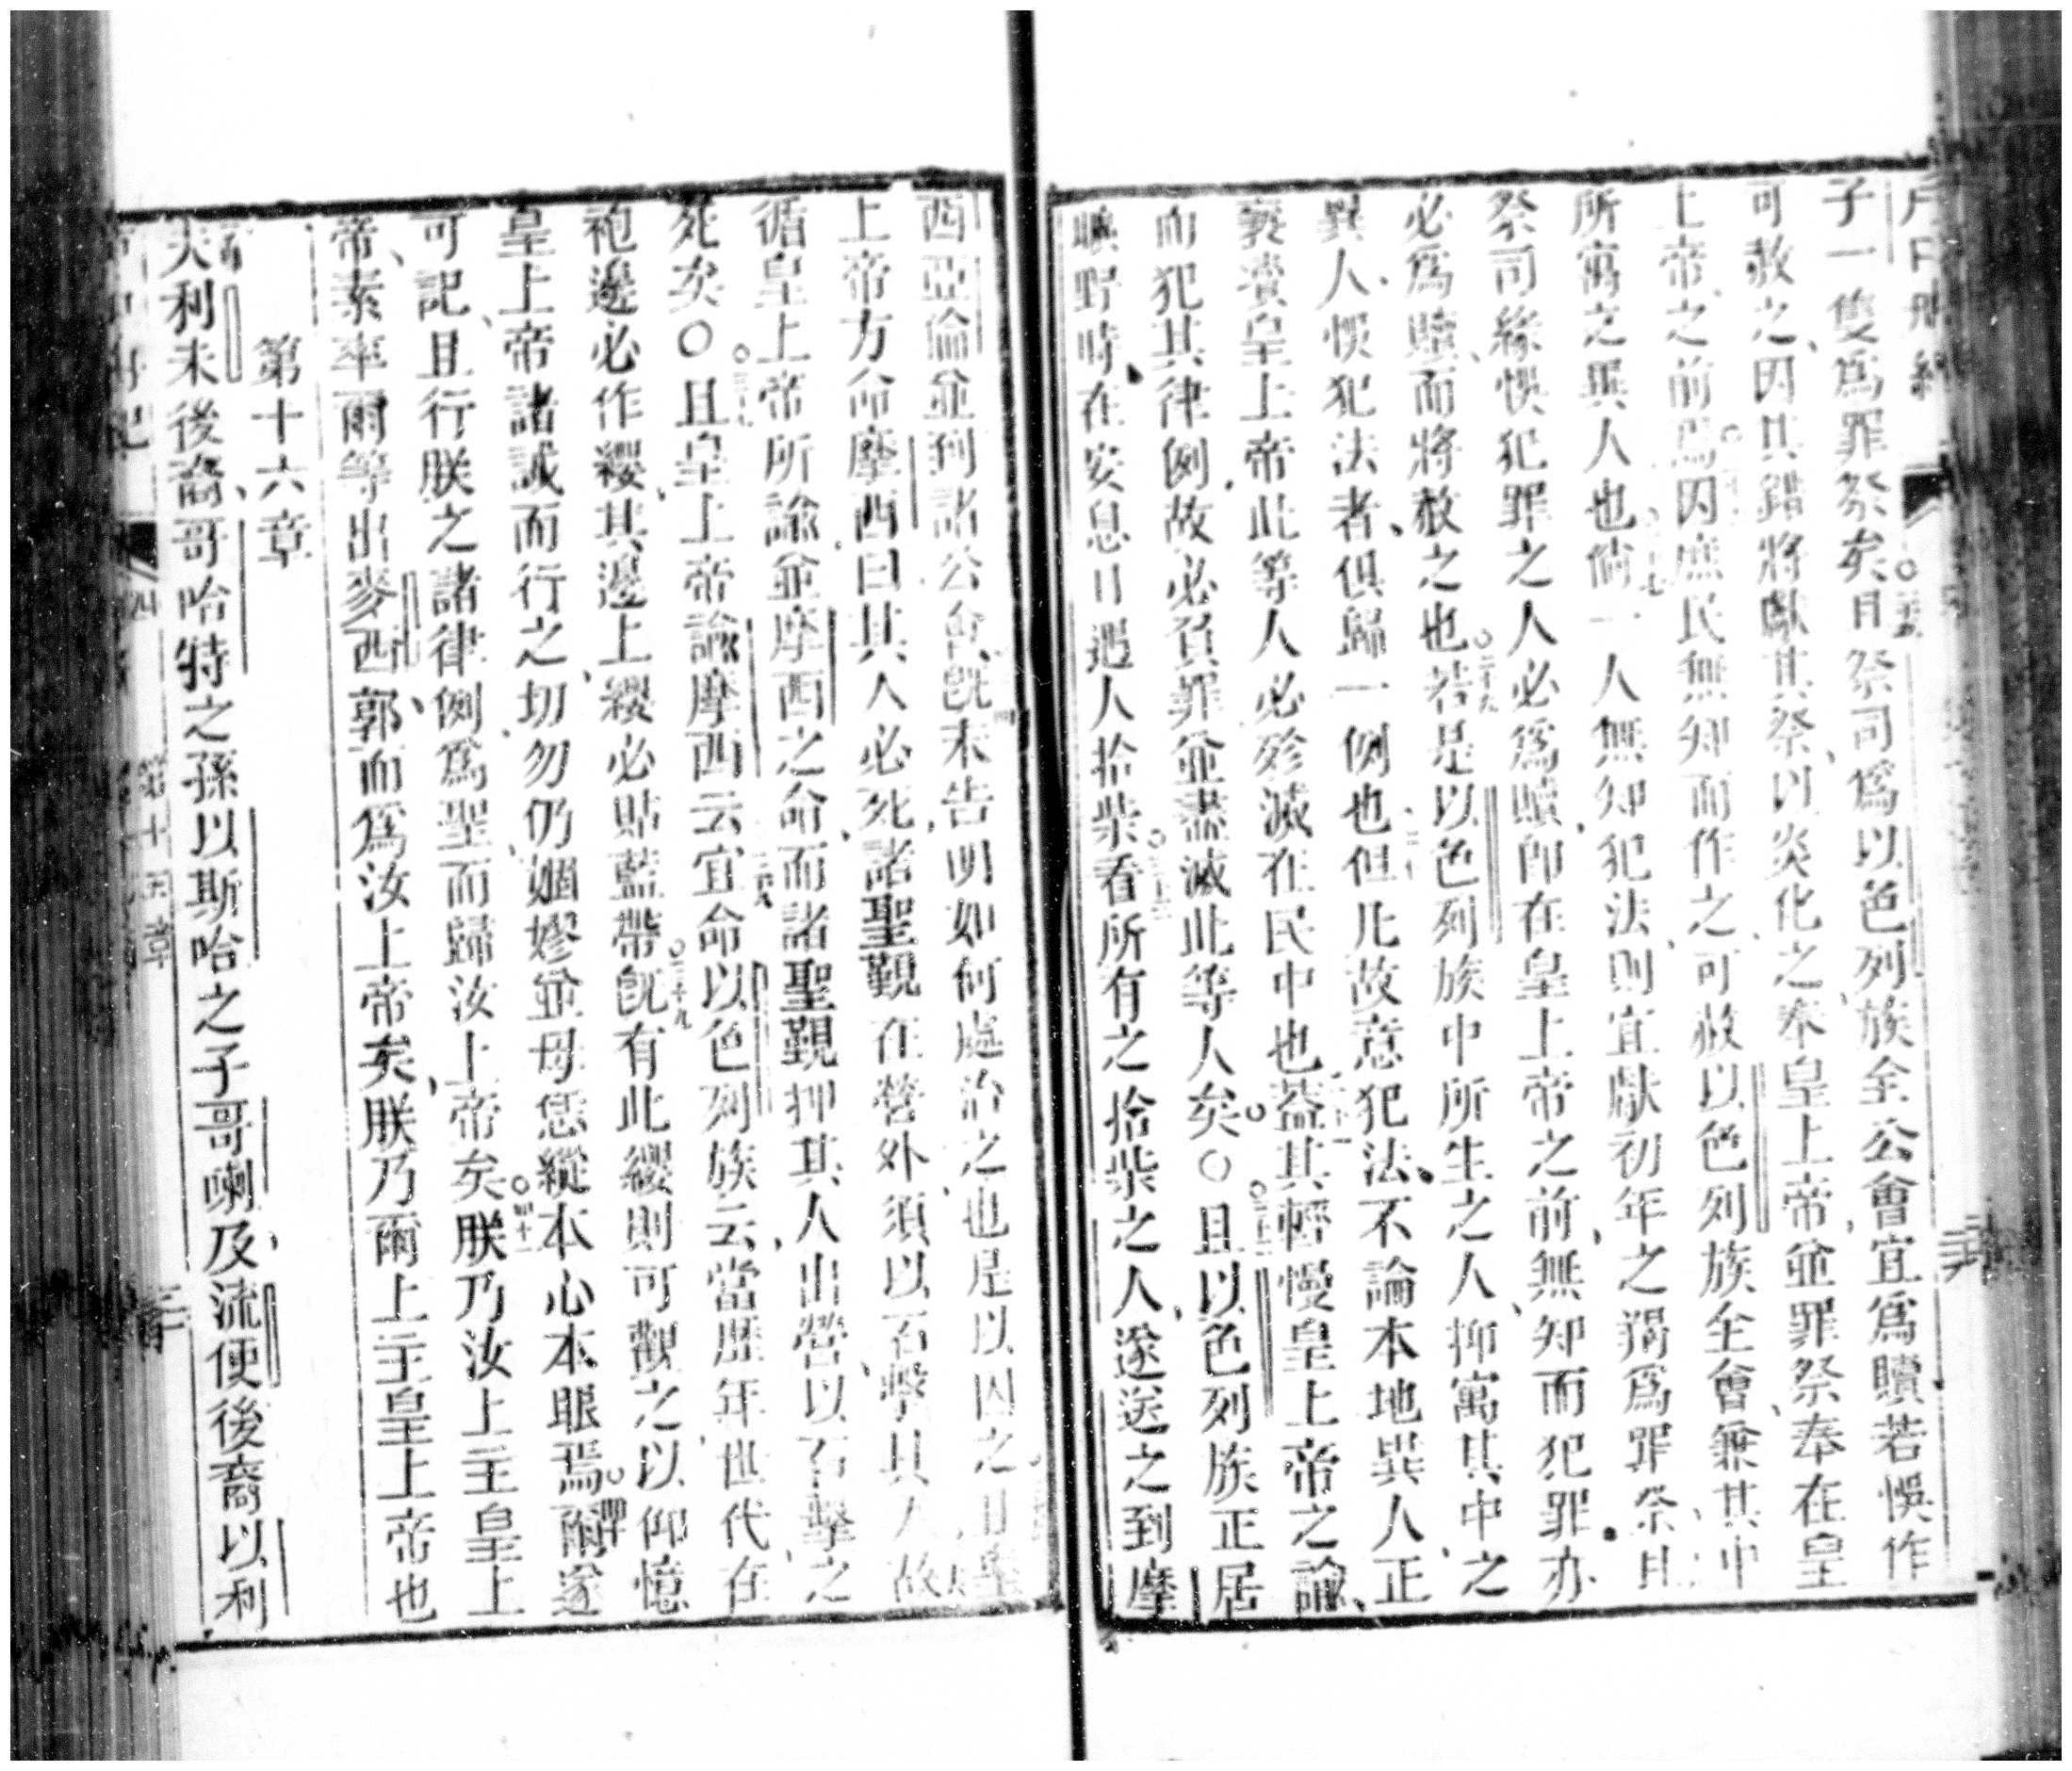 子一隻爲罪祭矣○二十五且祭司爲以色列族全公會宜爲贖若悞作
可赦之因其錯將獻其祭以炎化之奉皇上帝並罪祭奉在皇
上帝之前焉因庶民無知而作之可赦以色列族全會兼其中
所寓之異人也倘一人無知犯法則宜獻初年之羯爲罪祭且
祭司緣悞犯罪之人必爲贖卽在皇上帝之前無知而犯罪亦
必爲贖而將赦之也○二十九若是以色列族中所生之人抑寓其中之
異人悞犯法者俱歸一例也但凡故意犯法不論本地異人正
褻瀆皇上帝此等人必殄滅在民中也蓋其輕慢皇上帝之諭
而犯其律例故必負罪並盡滅此等人矣○○三十二且以色列族正居
曠野時在安息日遇人拾柴○三十三看所有之拾柴之人遂送之到摩
西亞倫並到諸公會旣未告明如何處治之也是以囚之且皇
上帝方命摩西曰其人必死諸聖覲在營外須以石擊其人故
循皇上帝所諭並摩西之命而諸聖覲押其人出營以石擊之
死矣○○三十七且皇上帝諭摩西云三十八宜命以色列族云當歷年世代在
袍邊必作纓其邊上纓必貼藍帶○三十九旣有此纓則可觀之以仰憶
皇上帝諸誡而行之切勿仍婟嫪並毋恁縱本心本眼焉○四十爾遂
可記且行朕之諸律例爲聖而歸汝上帝矣○四十一朕乃汝上主皇上
帝素率爾等出麥西郭而爲汝上帝矣朕乃爾上主皇上帝也
第十六章
夫利未後裔哥哈特之孫以斯哈之子哥喇及流便後裔以利
第十五章